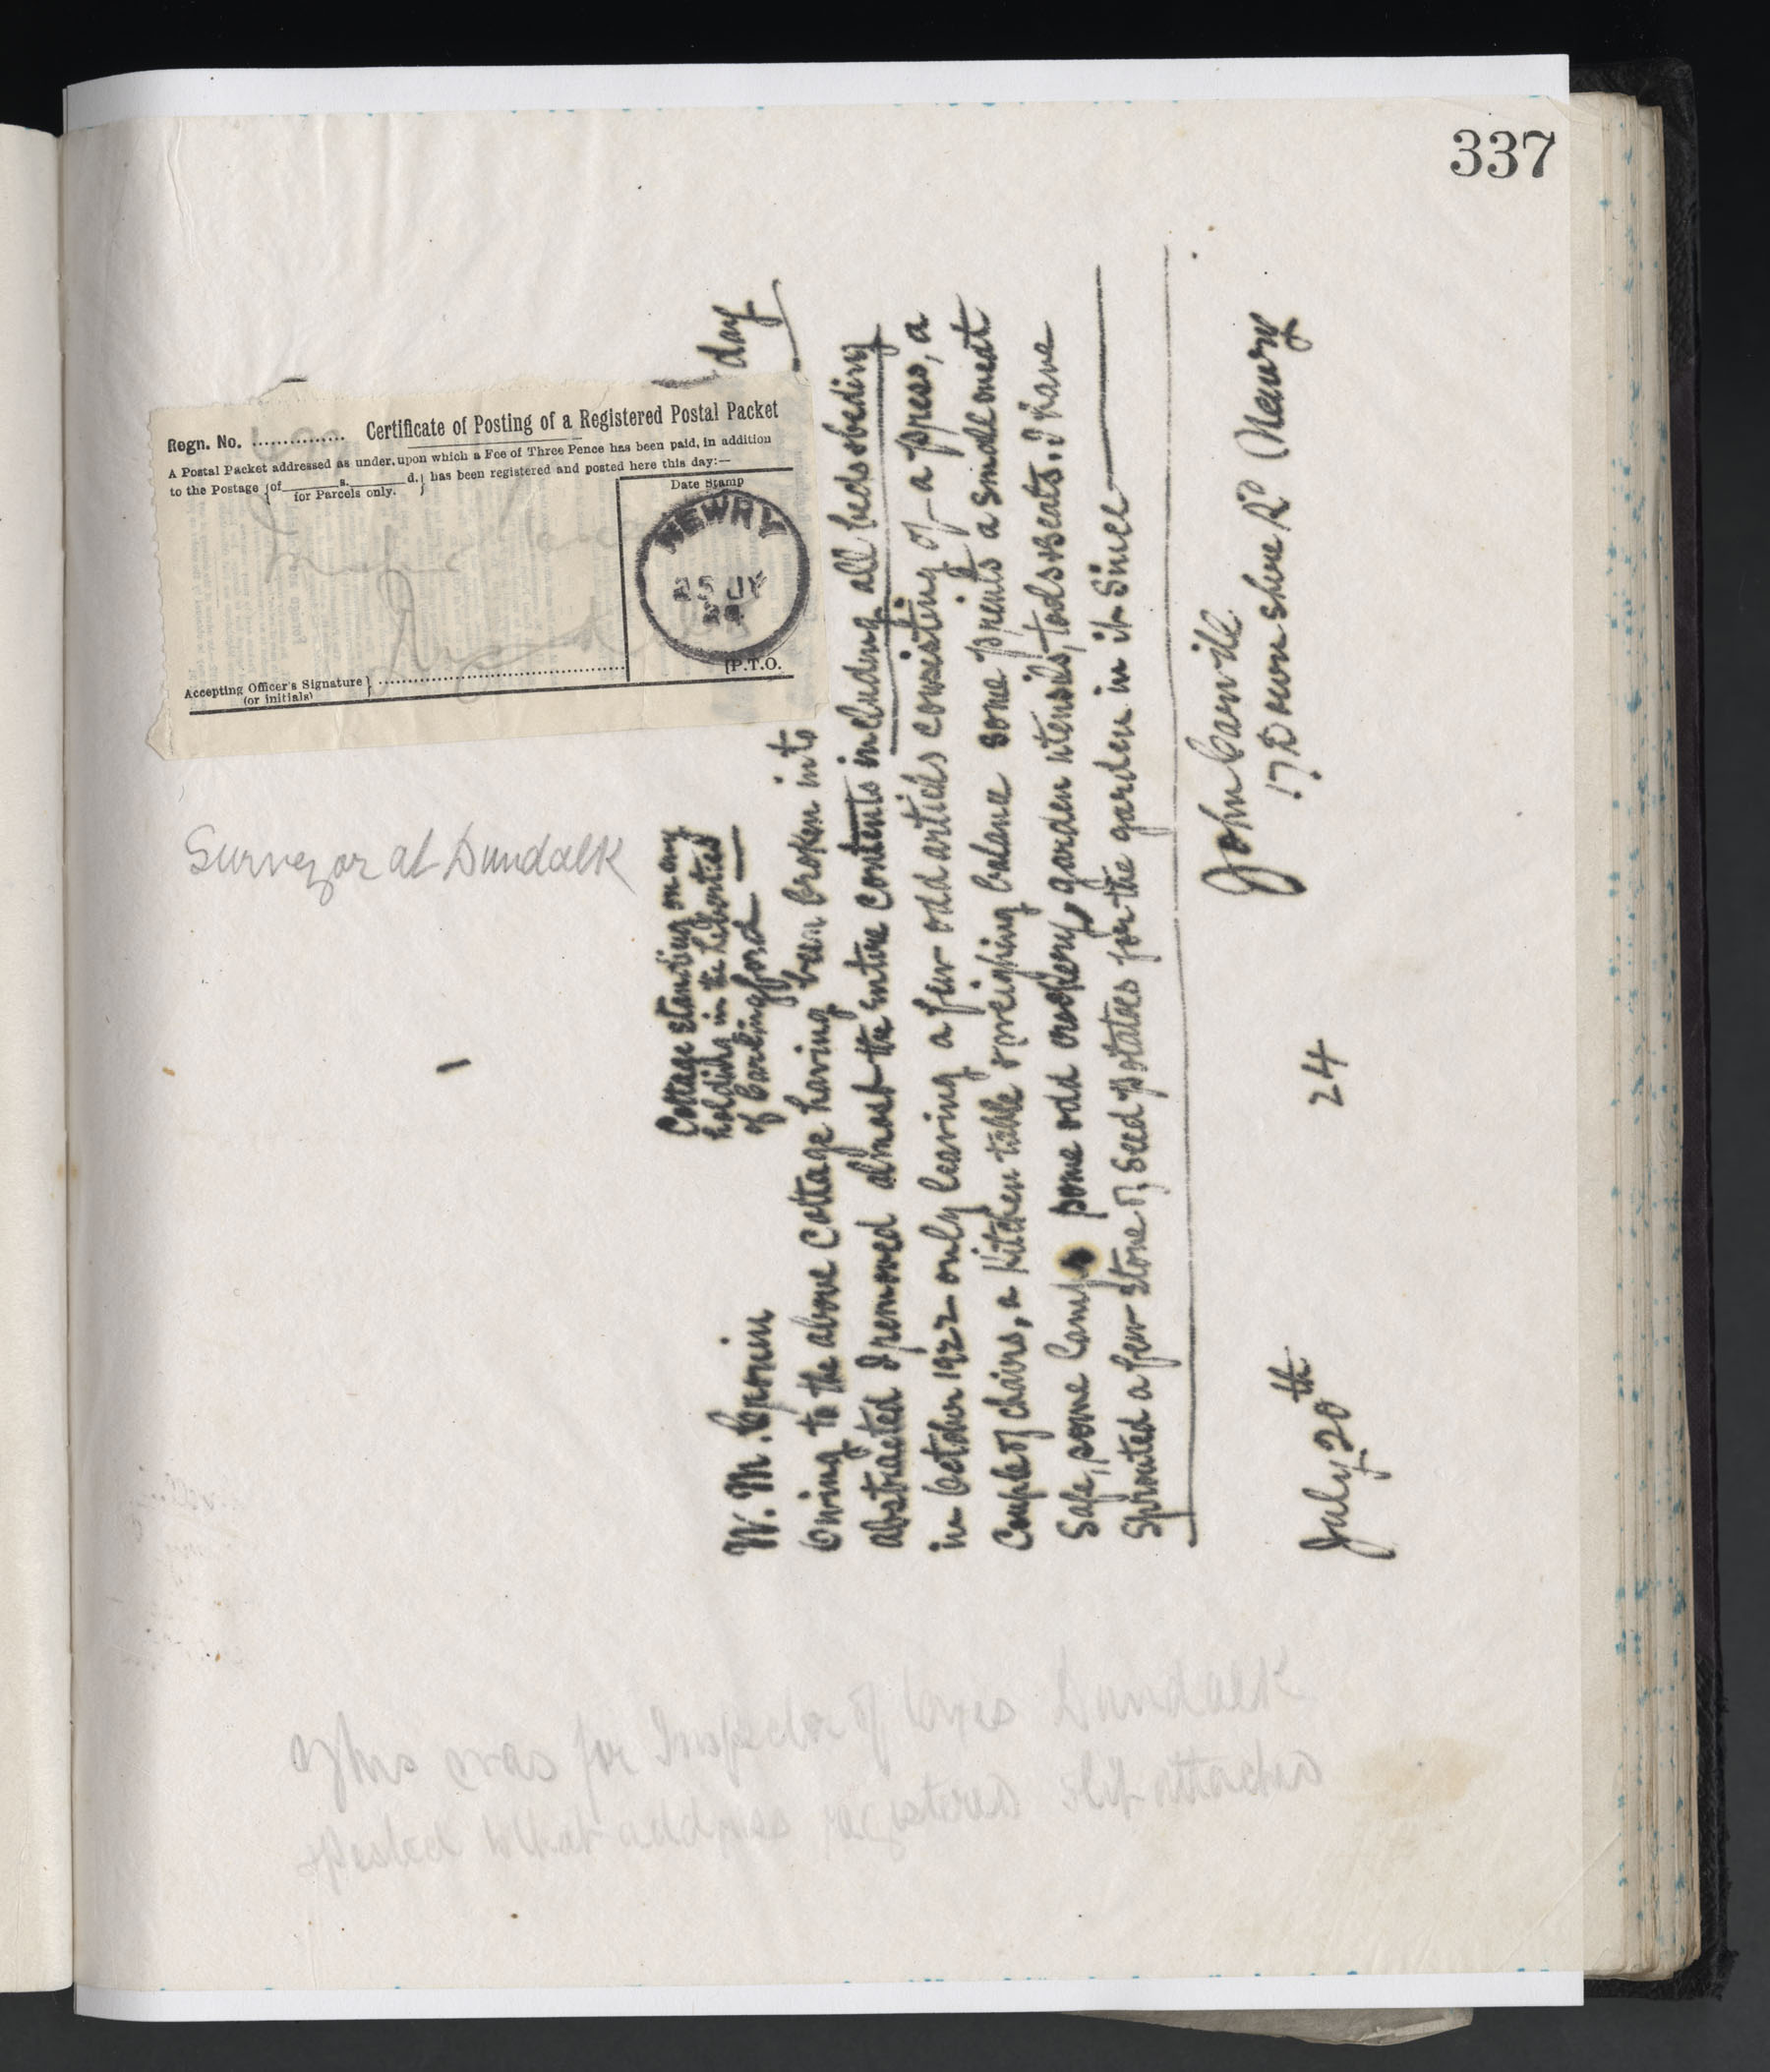 337
Regn. No. ............... Certificate of Posting of a Registered Postal Packet
A Postal Packet addressed as under, upon which a Fee of Three Pence has been paid, in addition
to the Postage { of ______ s. ______ d. } has been registered and posted here this day:—
for Parcels only.
Date Stamp
NEWRY
(P.T.O.
Accepting Officer's Signature }
(or initials)
Surveyor at Dundalk
day
Cottage standing on my
holding in the Liberties
of Carlingford
W. M. Cronin
Owing to the above Cottage having been broken into
abstracted I removed almost the entire contents including all beds & beding
in October 1922 only leaving a few odd articles consisting of - a press, a
Couple of chairs, a Kitchen table & weighing balance some prints a small meat
Safe, some lamps some odd crockery, garden utensils, tools & seats. I have
Sprouted a few Stone of Seed potatoes for the garden in it Since
John Carvill
17 Downshire Rd Newry
July 20th 24
This was for Inspector of Taxes Dundalk
& Posted to that address registered slip attached